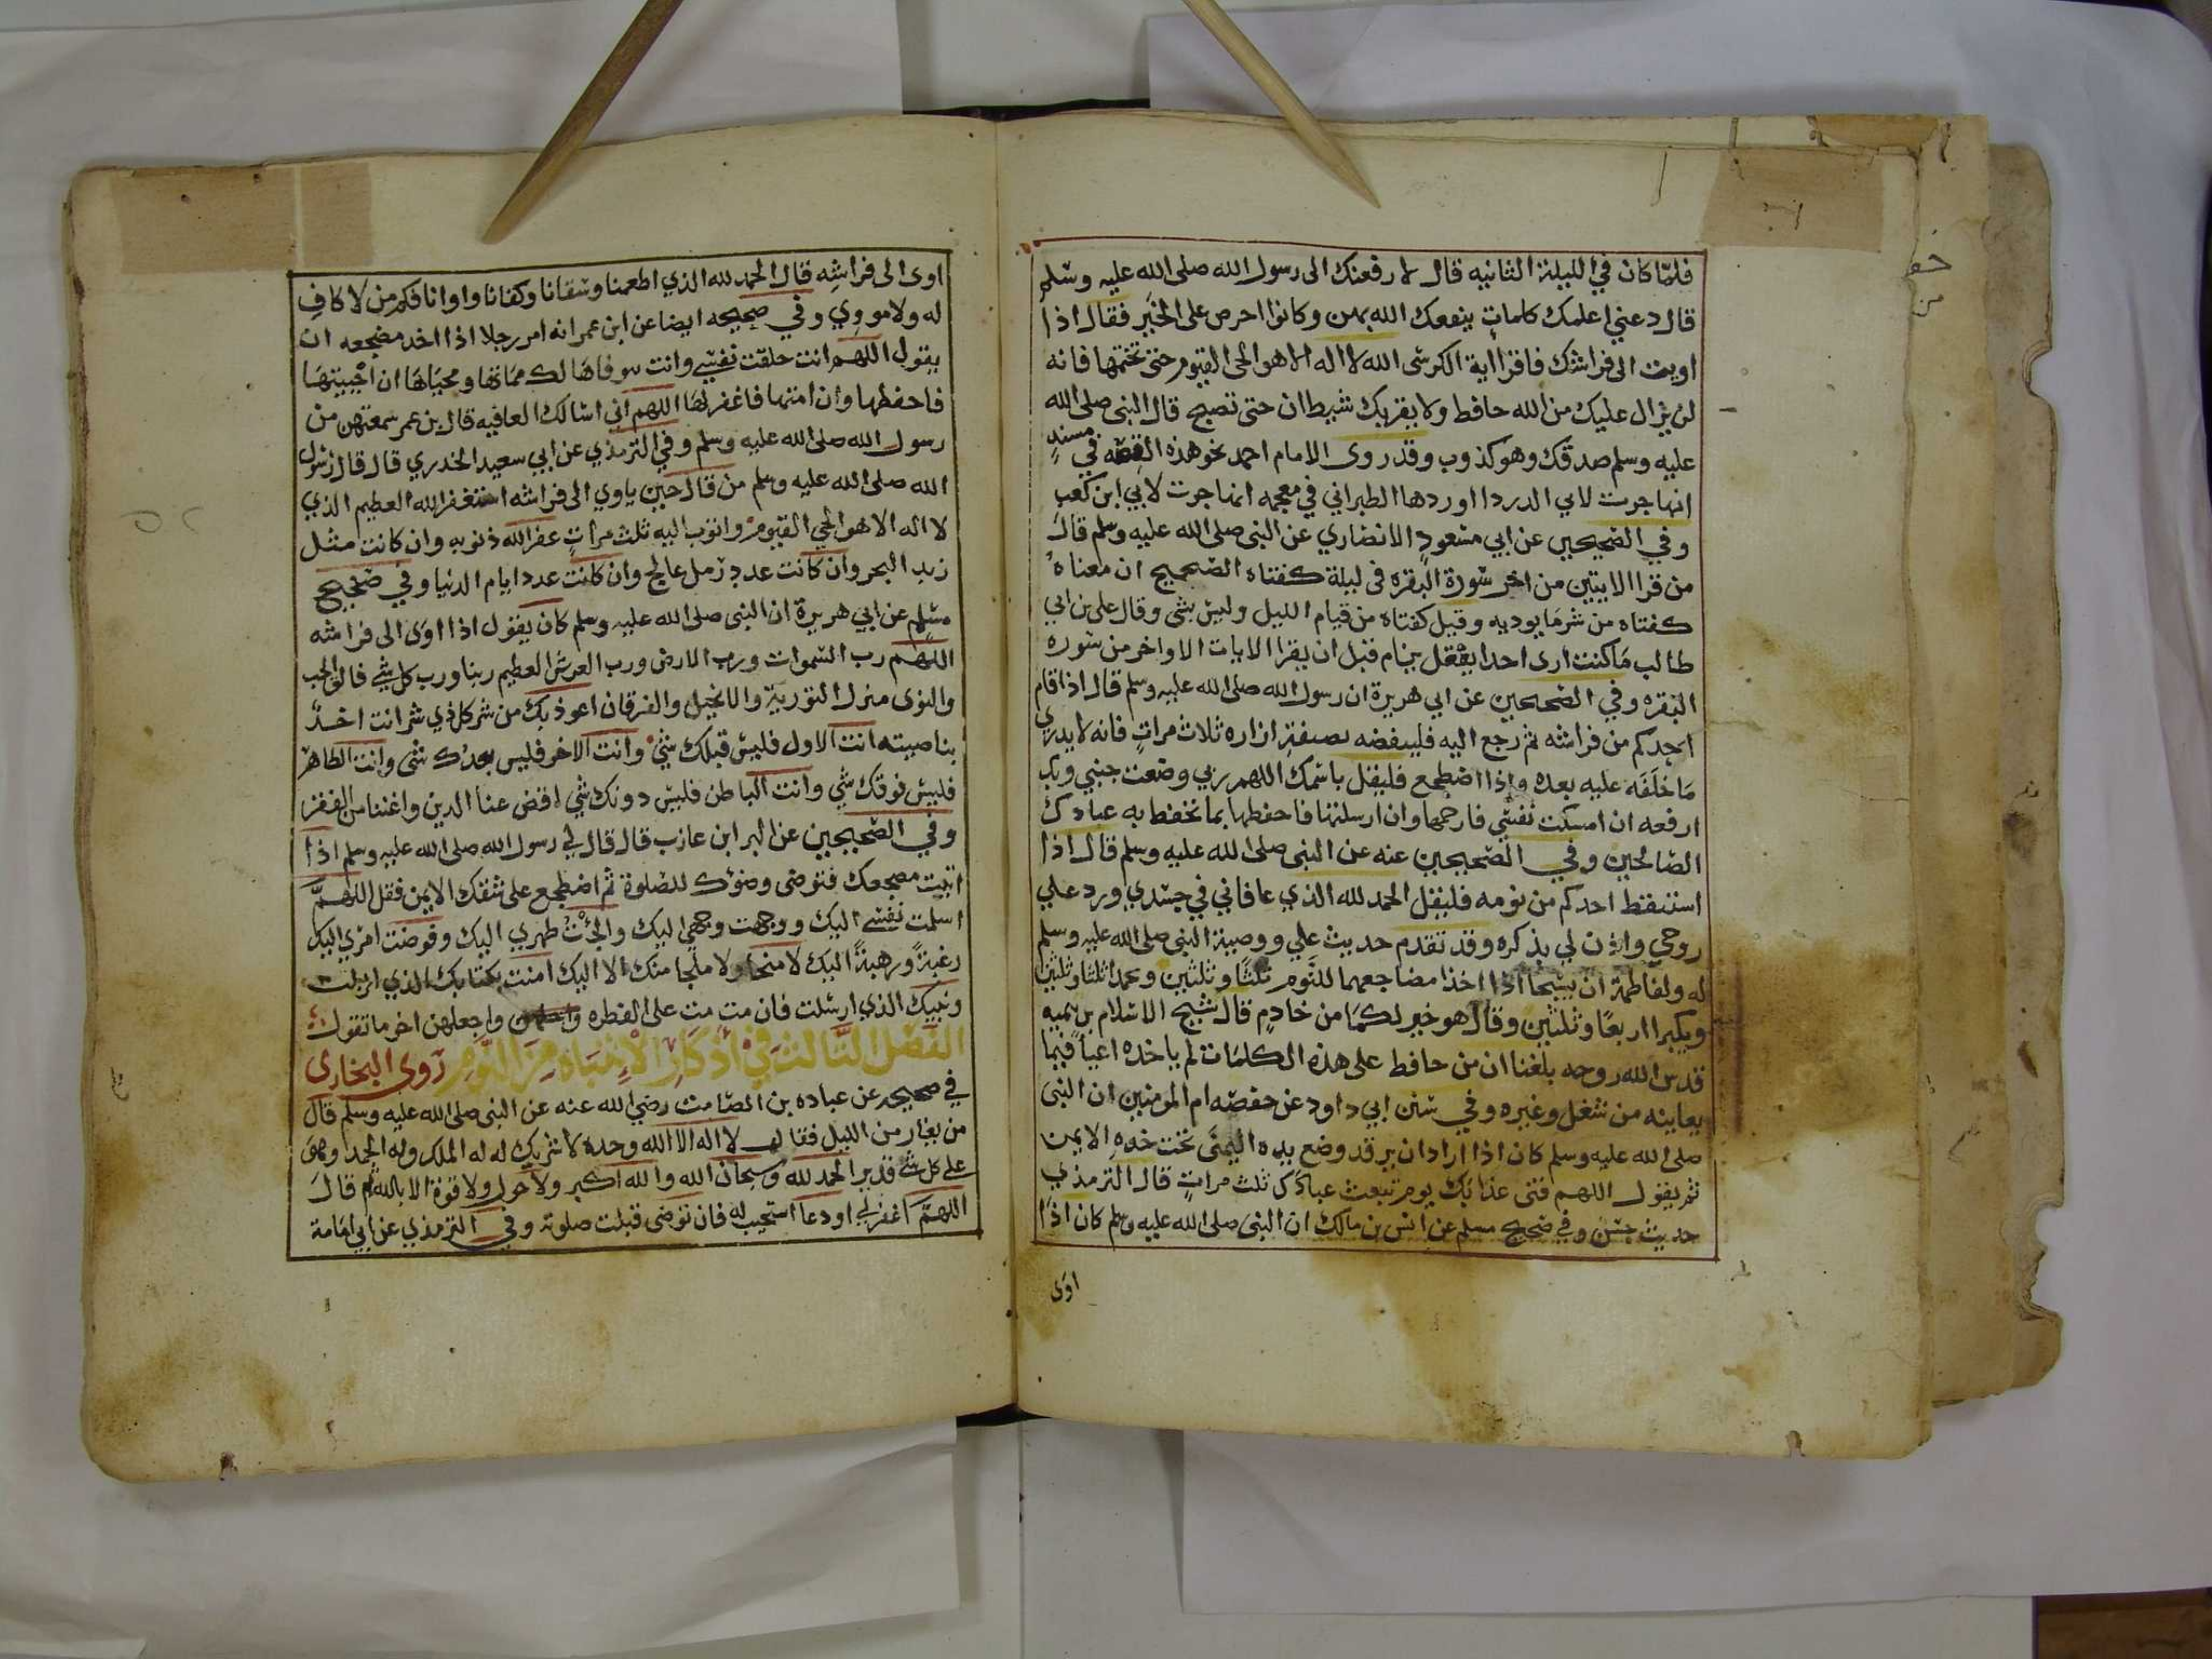 فلمّا كان في الليلة الثانيه قال لارفعنك الى رسول الله صلى الله عليه وسلم
قال دعني اعلمك كلمات ينفعك الله بهن وكانوا احرص على الخير فقال اذا
اويت الى فراشك فاقرا اية الكرسى الله لا اله الا هو الحى القيوم حتى تختمها فانه
لن يزال عليك من الله حافط ولا يقربك شيطان حتى تصبح قال النبى صلى الله
عليه وسلم صدقك وهو كذوب وقد روى الامام احمد نحو هذه القصه في مسنده
انها جرت لابي الدردا اوردها الطبراني في معجمه انها جرت لابي ابن كعب
وفي الصحيحين عن ابي مسعود الانصاري عن النبى صلى الله عليه وسلم قال
من قرا الايتين من اخر سورة البقره فى ليلة كفتاه الصحيح ان معناه
كفتاه من شر ما يوديه وقيل كفتاه من قيام الليل وليس بشى وقال على بن ابي
طالب ما كنت ارى احدا يعقل ينام قبل ان يقرا الايات الاواخر من سوره
البقره وفي الصحيحين عن ابي هريرة ان رسول الله صلى الله عليه وسلم قال اذا قام
احدكم من فراشه ثم رجع اليه فلينفضه بصنفة ازاره ثلاث مرات فانه لا يدري
ما خلفه عليه بعده واذا اضطجع فليقل باسمك اللهم ربي وضعت جنبي وبك
ارفعه ان امسكت نفسي فارحمها وان ارسلتها فاحفظها بما تحفظ به عبادك
الصالحين وفي الصحيحين عنه عن النبى صلى الله عليه وسلم قال اذا
استيقظ احدكم من نومه فليقل الحمد لله الذي عافاني في جسدي ورد علي
روحي واذن لي بذكره وقد تقدم حديث علي ووصية النبى صلى الله عليه وسلم
له ولفاطمة ان يسبحا اذا اخذا مضاجعهما للنوم ثلثا وثلثين وحمدا ثلثا وثلثين
ويكبرا اربعا وثلثين وقال هو خير لكما من خادم قال شيخ الاسلام بن تيميه
قدس الله روحه بلغنا ان من حافط على هذه الكلمات لم ياخذه اعيا فيما
يعاينه من شغل وغيره وفي سنن ابي داود عن حفصه ام المومنين ان النبى
صلى الله عليه وسلم كان اذا اراد ان يرقد وضع يده اليمنى تحت خده الايمن
ثم يقول اللهم قنى عذابك يوم تبعث عبادك ثلث مرات قال الترمذي
حديث حسن وفي صحيح مسلم عن انس بن مالك ان النبى صلى الله عليه وسلم كان اذا
اوى
اوى الى فراشه قال الحمد لله الذي اطعمنا وسقانا وكفانا واوانا فكم من لا كاف
له ولا مووي وفي صحيحه ايضا عن ابن عمر انه امر رجلا اذا اخد مضجعه ان
يقول اللهم انت خلقت نفسي وانت توفاها لك مماتها ومحياها ان احييتها
فاحفظها وان امتها فاغفر لها اللهم اني اسالك العافيه قال بن عمر سمعتهن من
رسول الله صلى الله عليه وسلم وفي الترمذي عن ابي سعيد الخدري قال قال رسول
الله صلى الله عليه وسلم من قال حين ياوي الى فراشه استغفر الله العظيم الذي
لا اله الا هو الحي القيوم واتوب اليه ثلث مرات غفر الله ذنوبه وان كانت مثل
زبد البحر وان كانت عدد رمل عالج وان كانت عدد ايام الدنيا وفي صحيح
مسلم عن ابي هريرة ان النبى صلى الله عليه وسلم كان يقول اذا اوى الى فراشه
اللهم رب السموات ورب الارض ورب العرش العظيم ربنا ورب كل شي فالق الحب
والنوى منزل التورية والانجيل والفرقان اعوذ بك من شر كل ذي شر انت اخذ
بناصيته انت الاول فليس قبلك شي وانت الاخر فليس بعدك شى وانت الظاهر
فليس فوقك شي وانت الباطن فليس دونك شي اقض عنا الدين واغننا من الفقر
وفي الصحيحين عن البر ابن عازب قال قال لي رسول الله صلى الله عليه وسلم اذا
اتيت مضجعك فتوضى وضوك للصلوة ثم اضطجع على شقك الايمن فقل اللهم
اسلمت نفسي اليك ووجهت وجهي اليك والجئت ظهري اليك وفوضت امري اليك
رغبة ورهبة اليك لا منجا ولا ملجا منك الا اليك امنت بكتابك الذي انزلت
ونبيك الذي ارسلت فان مت مت على الفطره واجعلهن اخر ما تقول
الفصل الثالث في اذكار الانتباه من النوم روى البخارى
في صحيحه عن عباده بن الصامت رضي الله عنه عن النبى صلى الله عليه وسلم قال
من تعار من الليل فقال لا اله الا الله وحده لا شريك له له الملك وله الحمد وهو
على كل شي قدير الحمد لله وسبحان الله والله اكبر ولا حول ولا قوة الا بالله ثم قال
اللهم اغفر لي او دعا استجيب له فان توضى قبلت صلوته وفي الترمذي عن ابي امامة